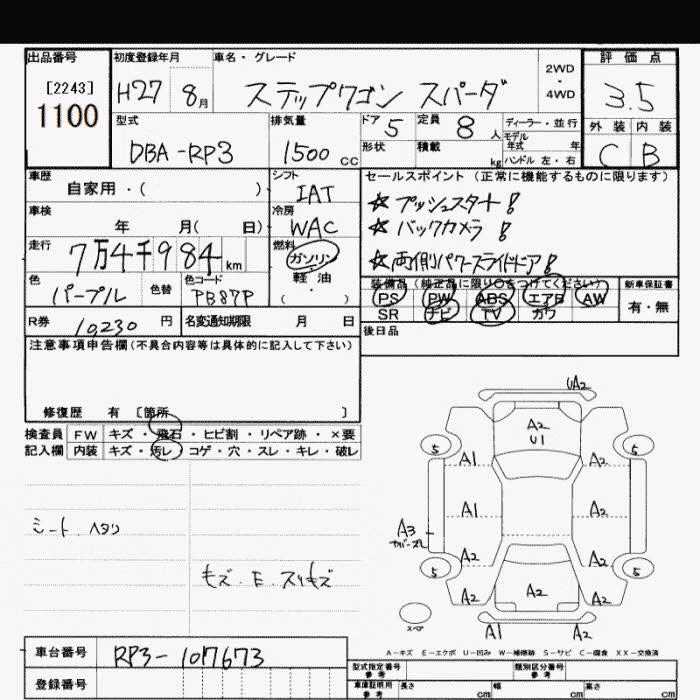 出品番号 初度登録年月 車名・グレード 評価点
[2243]
1100
H27 8月 ステップワゴン スパーダ 2WD・4WD 3.5
型式 排気量 ドア 5 定員 8人 ディーラー・並行 外装 内装
モデル年式 年
DBA-RP3 1500cc 形状 積載 kg ハンドル 左・右 C B
車歴 シフト セールスポイント (正常に機能するものに限ります)
自家用・( ) IAT ☆ プッシュスタート!
車検 冷房 ☆ バックカメラ!
年 月( 日) WAC
走行 燃料 ☆ 両側パワースライドドア!
7万4千984km ガソリン
軽・油
( ・ )
色 色替 色コード 装備品 (純正品に限り〇をつけてください) 新車保証書
パープル PB87P PS PW ABS エアB AW 有・無
SR ナビ TV カワ
R券 10,230円 名変通知期限 月 日 後日品
注意事項申告欄(不具合内容等は具体的に記入して下さい)
修復歴 有 〔箇所 〕
検査員 FW キズ・飛石・ヒビ割・リペア跡・×要
記入欄 内装 キズ・汚レ・コゲ・穴・スレ・キレ・破レ
UA2
A2
U1
5 5
A1 A2
A1 A2
A3
カバーズレ
A2 A2
5 5
A2 A2 A2
スペア
A1 A2
シート ヘタリ
キズ・E・スリキズ
A−キズ E−エクボ U−凹み W−補修跡 S−サビ C−腐食 XX−交換済
車台番号 RP3-1017673 型式指定番号 参考 類別区分番号 参考
登録番号 車庫証明用 参考 長さ cm 幅 cm 高さ cm